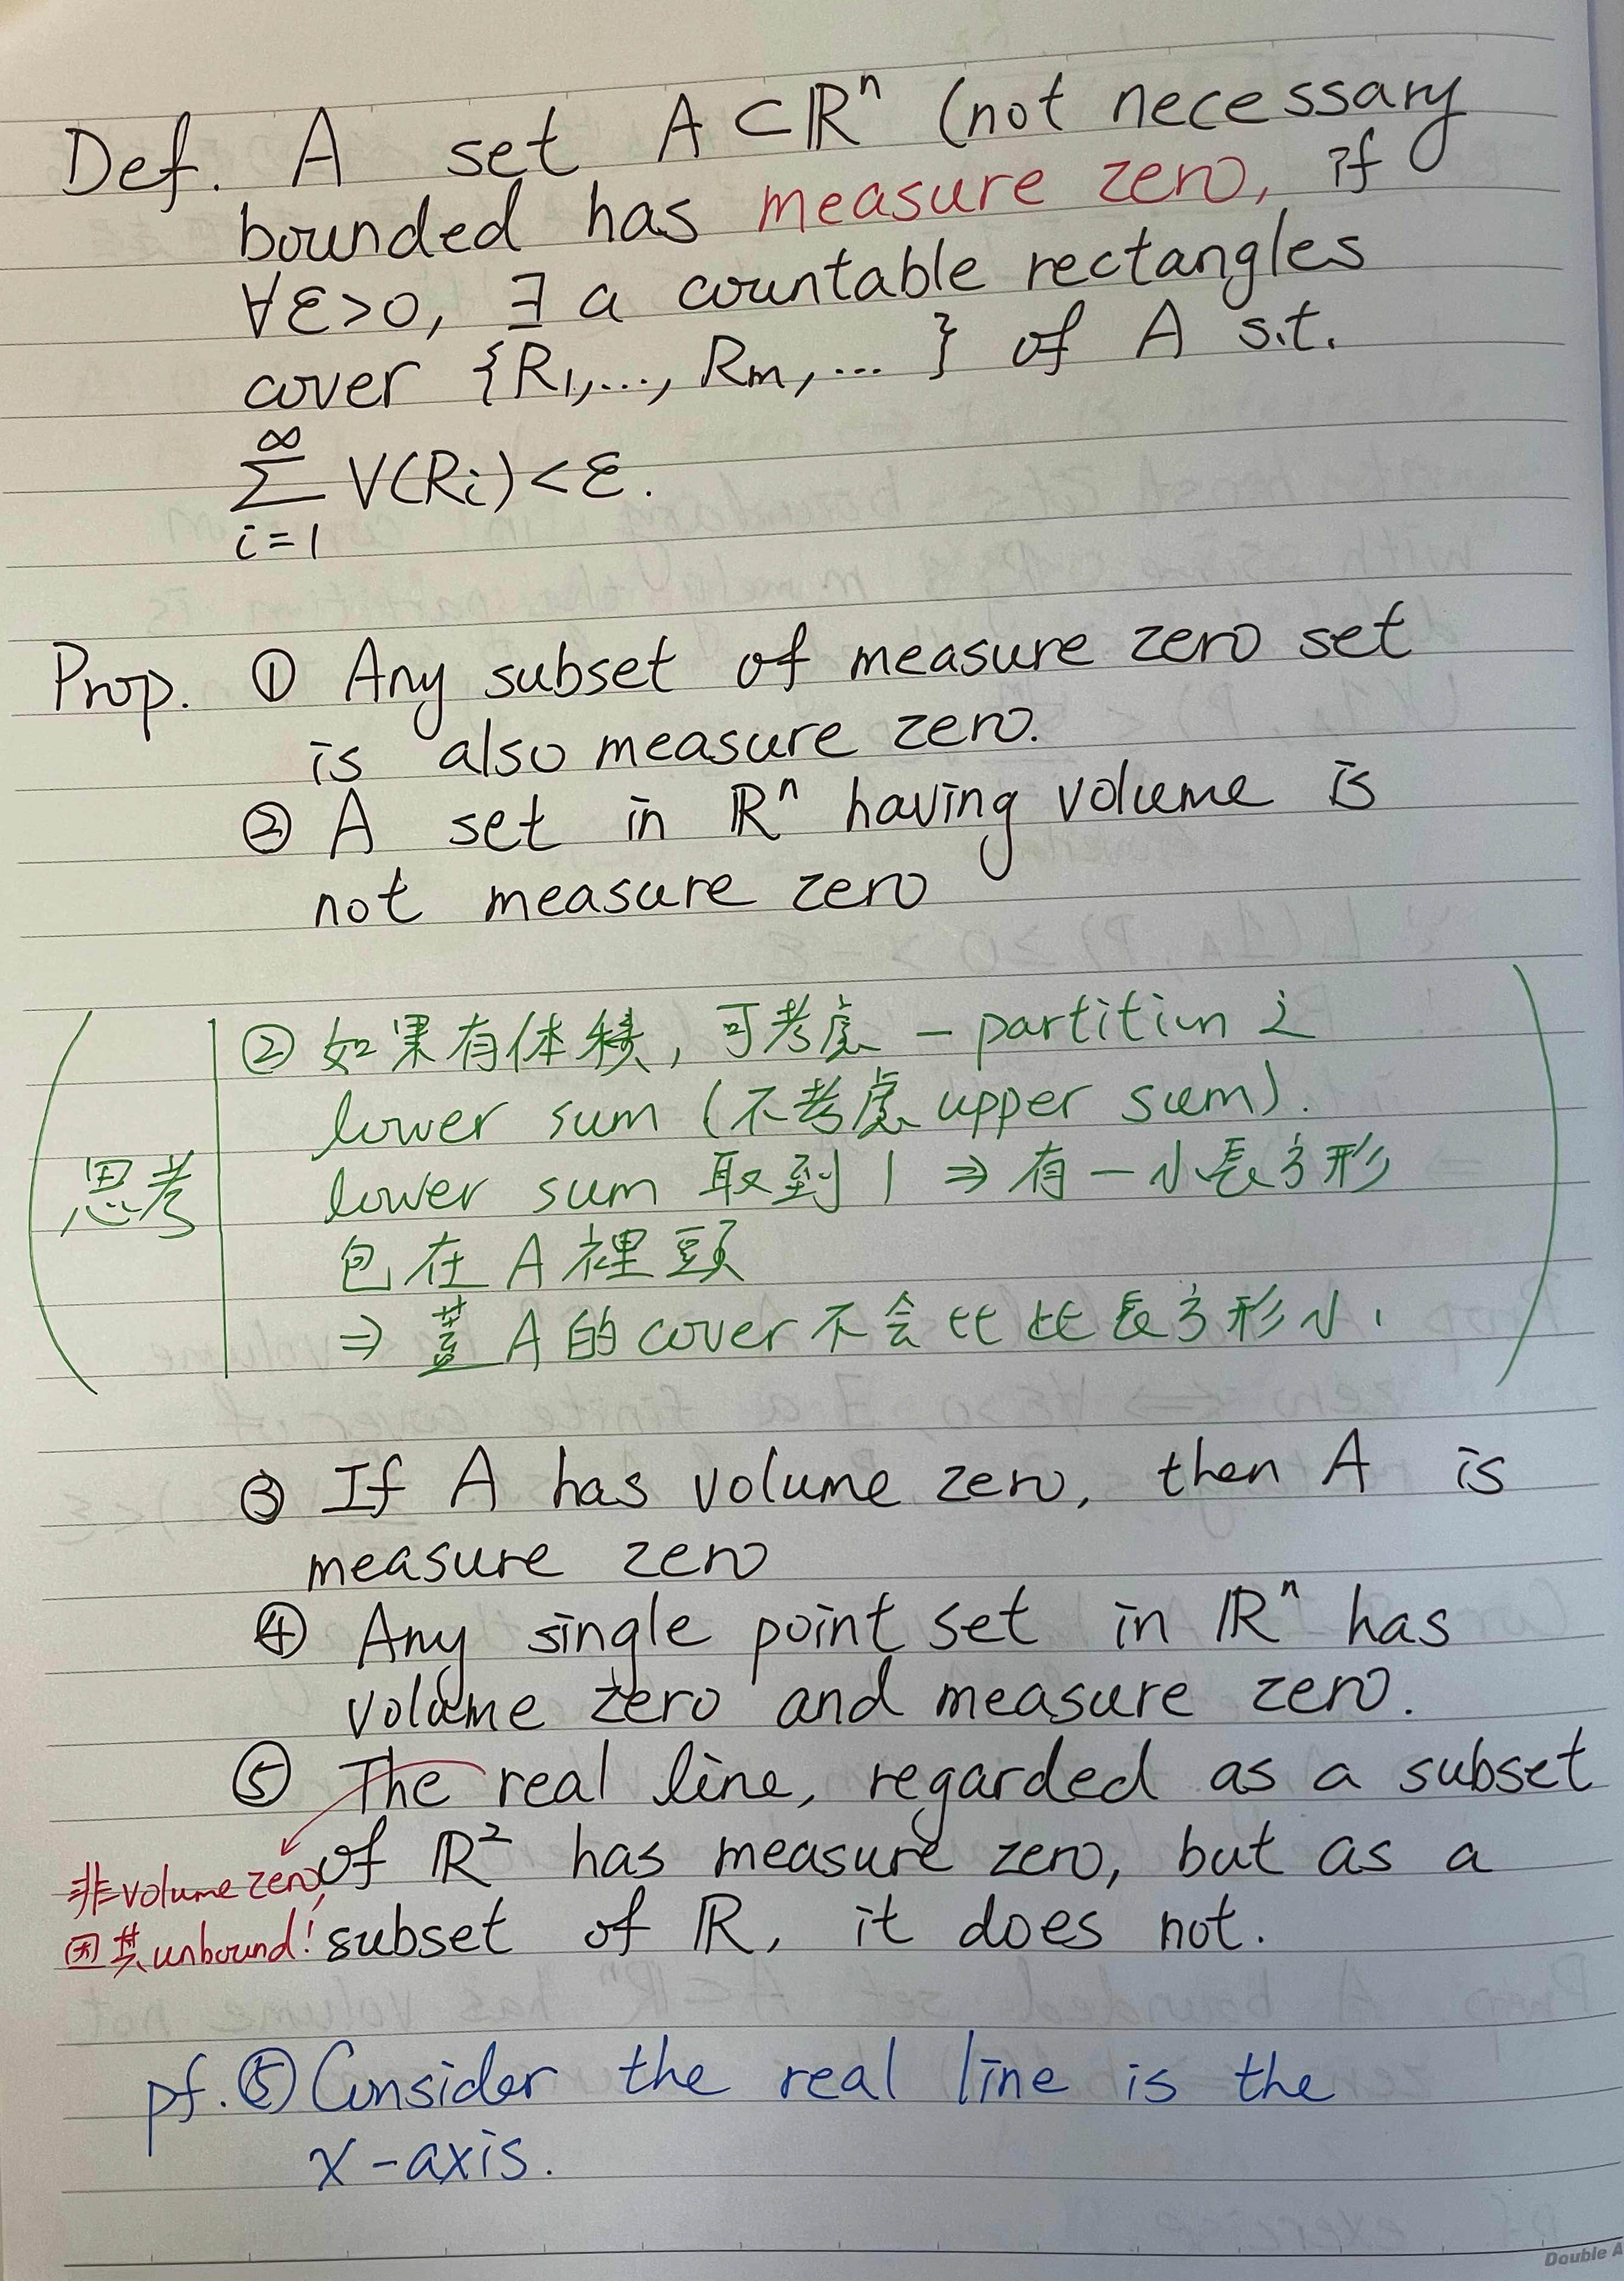 Def. A set A⊂ℝⁿ (not necessary
bounded has measure zero, if
∀ε>0, ∃ a countable rectangles
cover {R₁,..., Rₘ, ... } of A s.t.
∞
∑ V(Rᵢ)<ε.
i=1
Prop. ① Any subset of measure zero set
is also measure zero.
② A set in ℝⁿ having volume is
not measure zero
思考
② 如果有体積, 可考慮一partition之
lower sum (不考慮 upper sum).
lower sum 取到 1 ⇒ 有一小長方形
包在 A 裡頭
⇒ 蓋 A 的 cover 不会比此長方形小.
③ If A has volume zero, then A is
measure zero
④ Any single point set in ℝⁿ has
volume zero and measure zero.
⑤ The real line, regarded as a subset
of ℝ² has measure zero, but as a
subset of ℝ, it does not.
非volume zero,
因其unbound!
pf. ⑤ Consider the real line is the
x-axis.
Double A